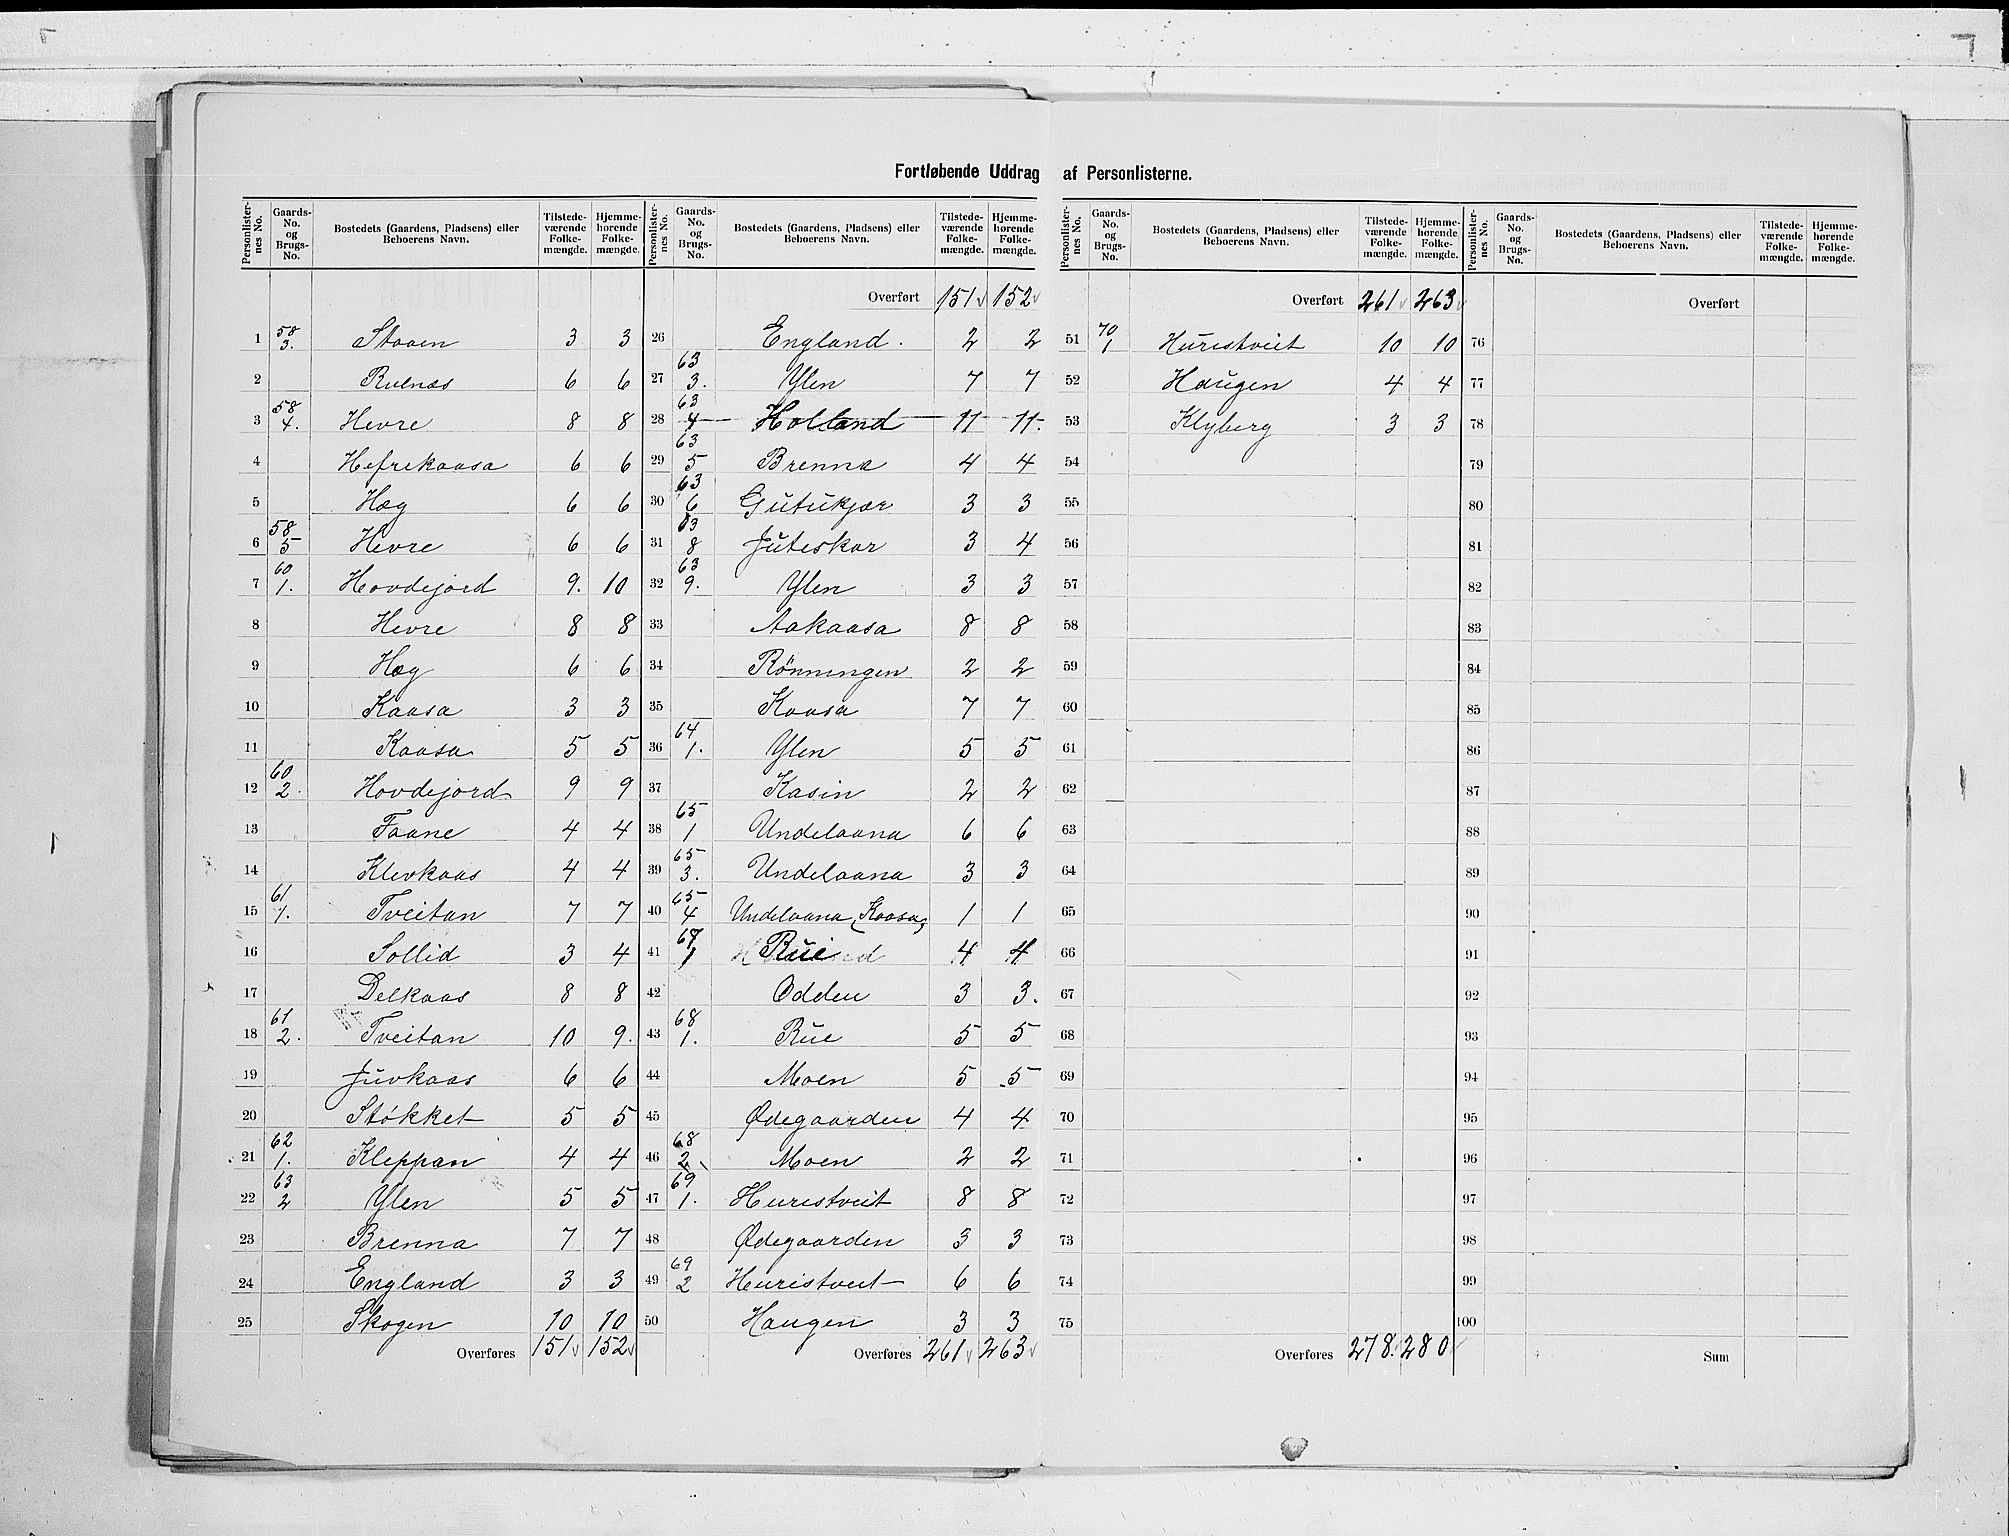 Fortløbende Uddrag af Personlisterne.
Personlisternes No. | Gaards-No. og Brugs-No. | Bostedets (Gaardens, Pladsens) eller Beboerens Navn. | Tilstedeværende Folkemængde. | Hjemmehørende Folkemængde.
1 58/3. Staaen 3 3
2 Ruenæs 6 6
3 58/4. Hevre 8 8
4 Hefrekaasa 6 6
5 Hæg 6 6
6 58/5 Hevre 6 6
7 60/1. Hovdejord 9. 10
8 Hevre 8 8
9 Hæg 6 6
10 Kaasa 3 3
11 Kaasa 5 5
12 60/2. Hovdejord 9 9
13 Faane 4 4
14 Klevkaas 4 4
15 61/1. Tveitan 7 7
16 Sollid 3 4
17 Delkaas 8 8
18 61/2. Tveitan 10 9.
19 Juvkaas 6 6
20 Støkket 5 5
21 62/1. Kleppan 4 4
22 63/2 Ylen 5 5
23 Brenna 7 7
24 England 3 3
25 Skogen 10 10
Overføres 151 152
Personlisternes No. | Gaards-No. og Brugs-No. | Bostedets (Gaardens, Pladsens) eller Beboerens Navn. | Tilstedeværende Folkemængde. | Hjemmehørende Folkemængde.
Overført 151 152
26 England. 2 2
27 63/3. Ylen 7 7
28 63/4 Holland 11 11.
29 63/5 Brenna 4 4
30 63/6 Gutukjær 3 3
31 63/8 Juteskar 3 4
32 63/9. Ylen 3 3
33 Aakaasa 8 8
34 Rönningen 2 2
35 Kaasa 7 7
36 64/1. Ylen 5 5
37 Kasin 2 2
38 65/1 Undelaana 6 6
39 65/3. Undelaana 3 3
40 65/4 Undelaana (Kaasa) 1 1
41 67/1 Rue 4 4
42 Odden 3 3.
43 68/1. Rue 5 5
44 Moen 5 5
45 Ødegaarden 4 4
46 68/2 Moen 2 2
47 69/1. Hurestveit 8 8
48 Ødegaarden 3 3
49 69/2 Huristveit 6 6
50 Haugen 3 3
Overføres 261 263
Personlisternes No. | Gaards-No. og Brugs-No. | Bostedets (Gaardens, Pladsens) eller Beboerens Navn. | Tilstedeværende Folkemængde. | Hjemmehørende Folkemængde.
Overført 261 263
51 70/1 Hurestveit 10 10
52 Haugen 4 4
53 Klyberg 3 3
54
55
56
57
58
59
60
61
62
63
64
65
66
67
68
69
70
71
72
73
74
75
Overføres 278. 280
Personlisternes No. | Gaards-No. og Brugs-No. | Bostedets (Gaardens, Pladsens) eller Beboerens Navn. | Tilstedeværende Folkemængde. | Hjemmehørende Folkemængde.
Overført
76
77
78
79
80
81
82
83
84
85
86
87
88
89
90
91
92
93
94
95
96
97
98
99
100
Sum